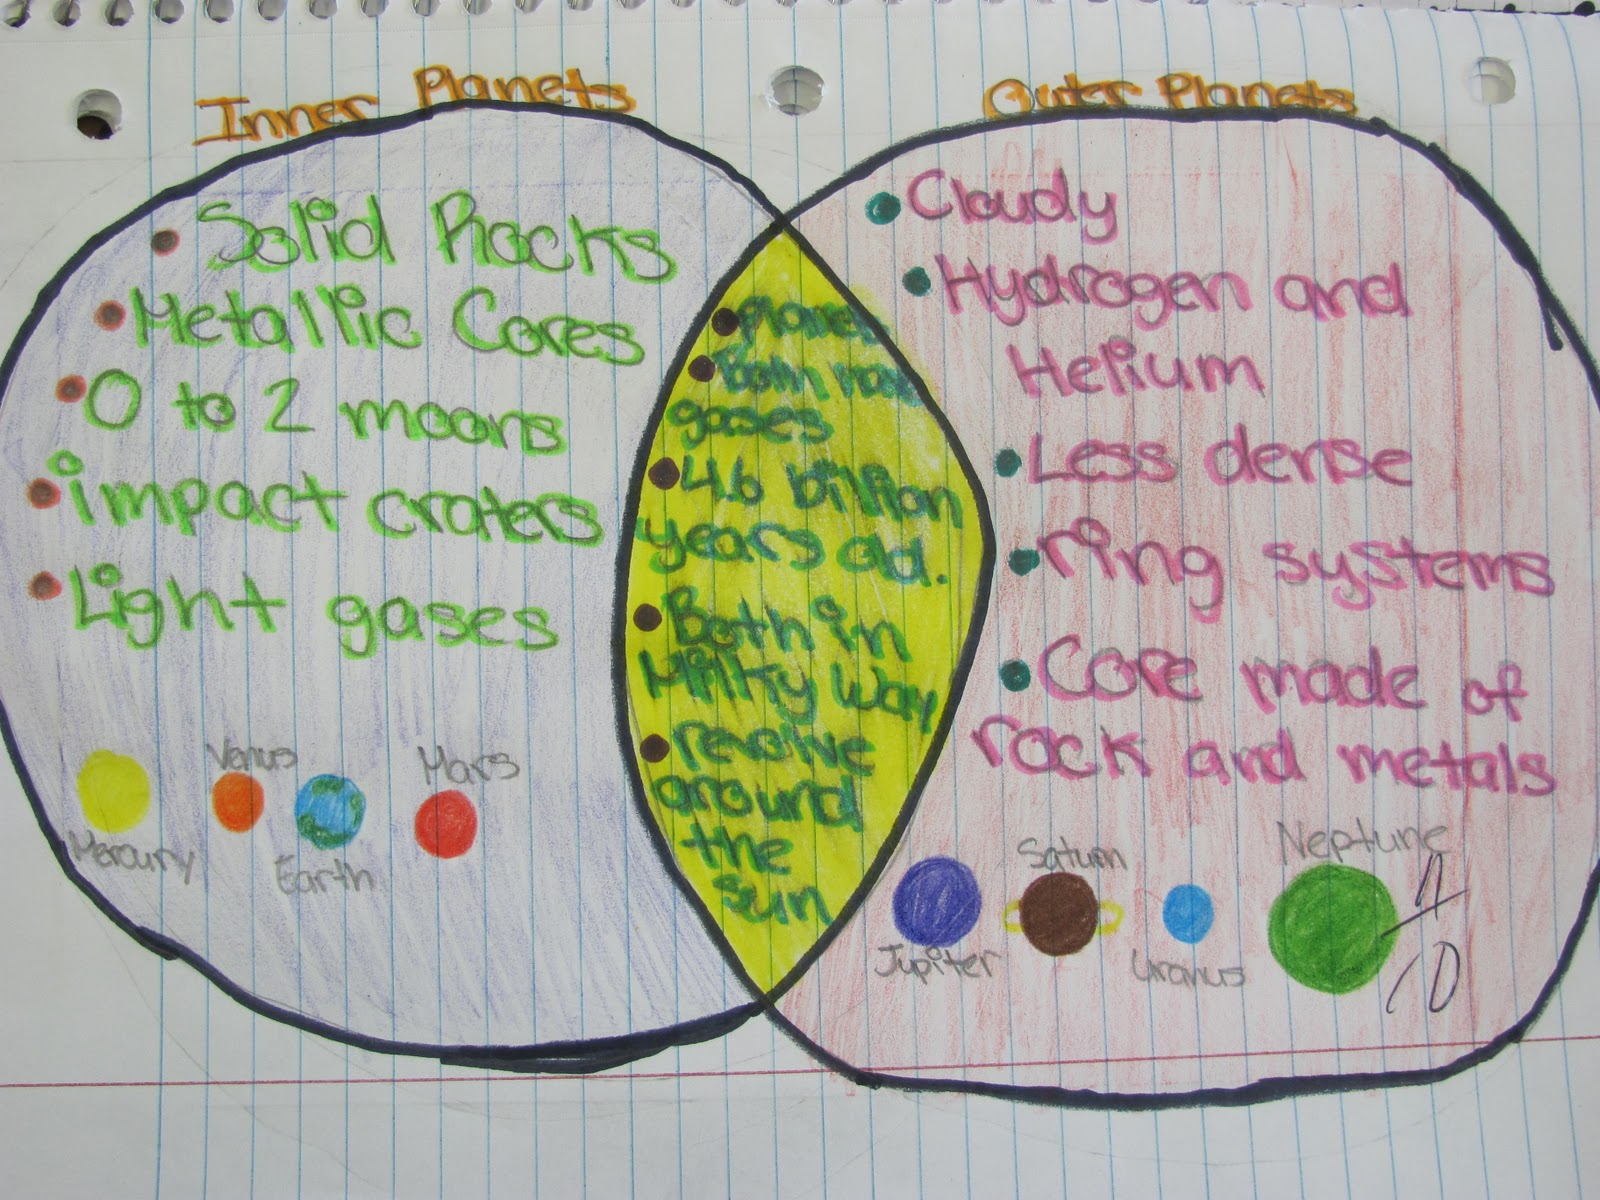 Inner Planets
Outer Planets
Solid Rocks
Metallic Cores
0 to 2 moons
impact craters
Light gases
Venus
Mars
Mercury
Earth
planets
Both have
gases
4.6 billion
years old.
Both in
Milky Way
revolve
around
the
sun
Cloudy
Hydrogen and
Helium
Less dense
ring systems
Core made of
rock and metals
Saturn
Neptune
Jupiter
Uranus
10